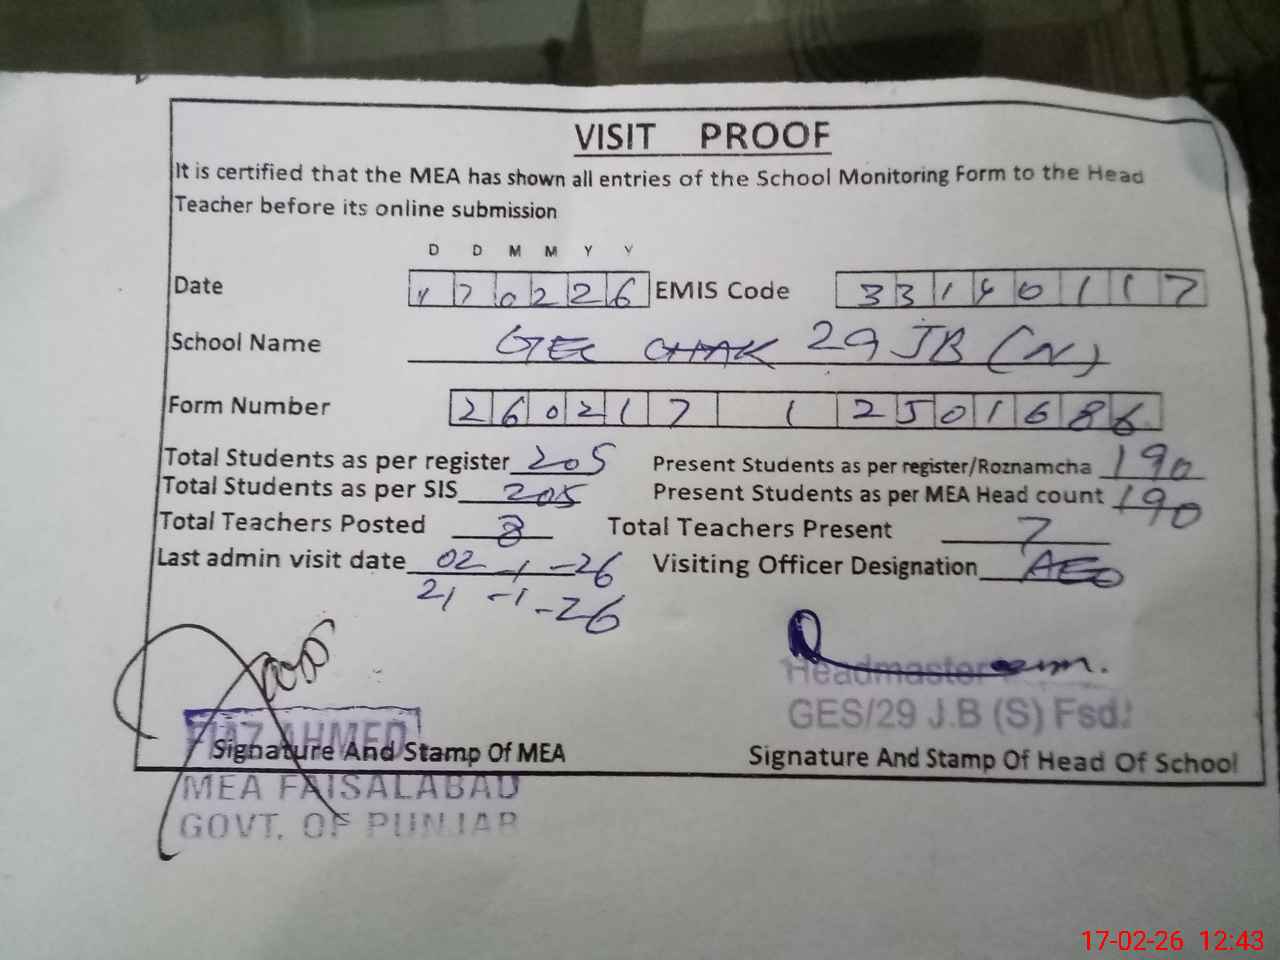 VISIT PROOF
It is certified that the MEA has shown all entries of the School Monitoring Form to the Head
Teacher before its online submission
D D M M Y Y
Date 170226 EMIS Code 33140117
School Name GES CHAK 29 JB (N)
Form Number 260217 1 2501686
Total Students as per register 205 Present Students as per register/Roznamcha 190
Total Students as per SIS 205 Present Students as per MEA Head count 190
Total Teachers Posted 8 Total Teachers Present 7
Last admin visit date 02-1-26 Visiting Officer Designation AEO
21-1-26
Headmaster
GES/29 J.B (S) Fsd.
AHMED
Signature And Stamp Of MEA Signature And Stamp Of Head Of School
MEA FAISALABAD
GOVT. OF PUNJAB
17-02-26 12:43